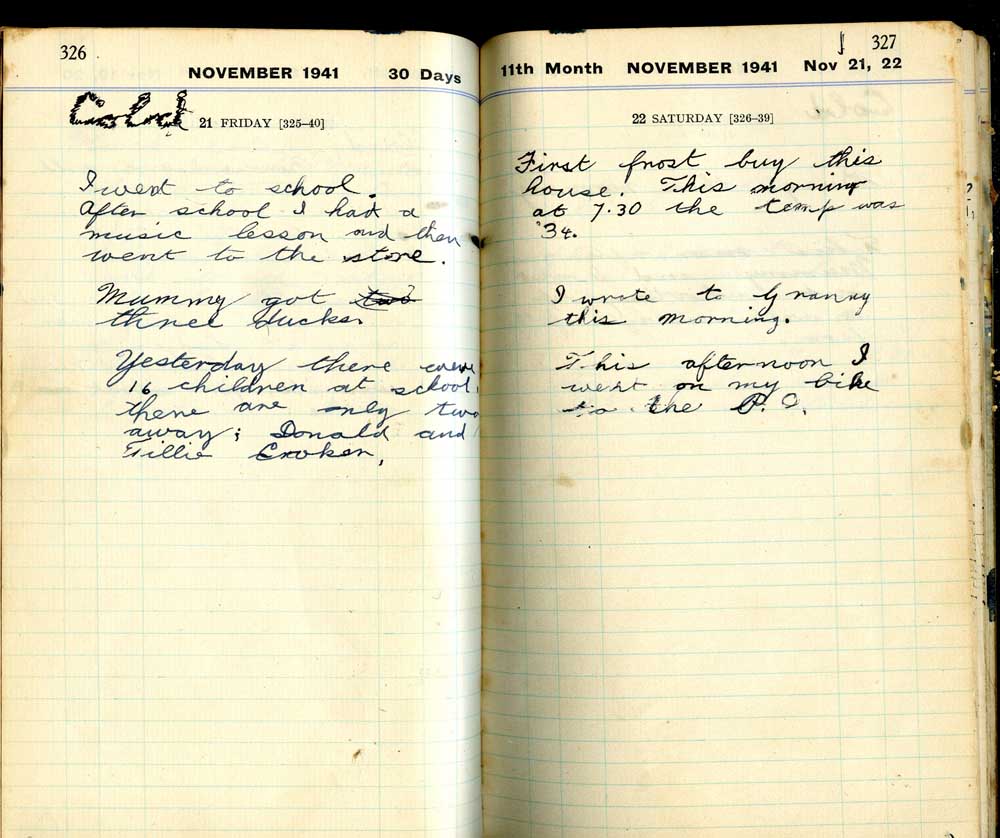 326
NOVEMBER 1941 30 Days
Cold
21 FRIDAY [325–40]
I went to school.
After school I had a
music lesson and then
went to the store.
Mummy got two
three ducks.
Yesterday there were
16 children at school,
there are only two
away; Donald and
Tillie Croken,
327
11th Month NOVEMBER 1941 Nov 21, 22
22 SATURDAY [326–39]
First frost buy this
house. This morning
at 7.30 the temp was
34.
I wrote to Granny
this morning.
This afternoon I
went on my bike
to the P.O.